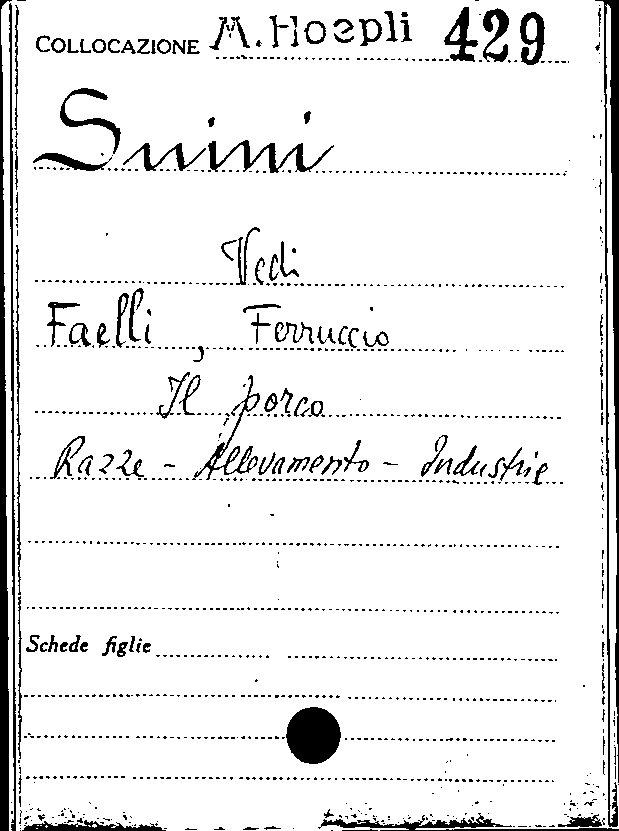 COLLOCAZIONE M. Hoepli 429
Suini
Vedi
Faelli, Ferruccio
Il porco
Razze - Allevamento - Industrie
Schede figlie